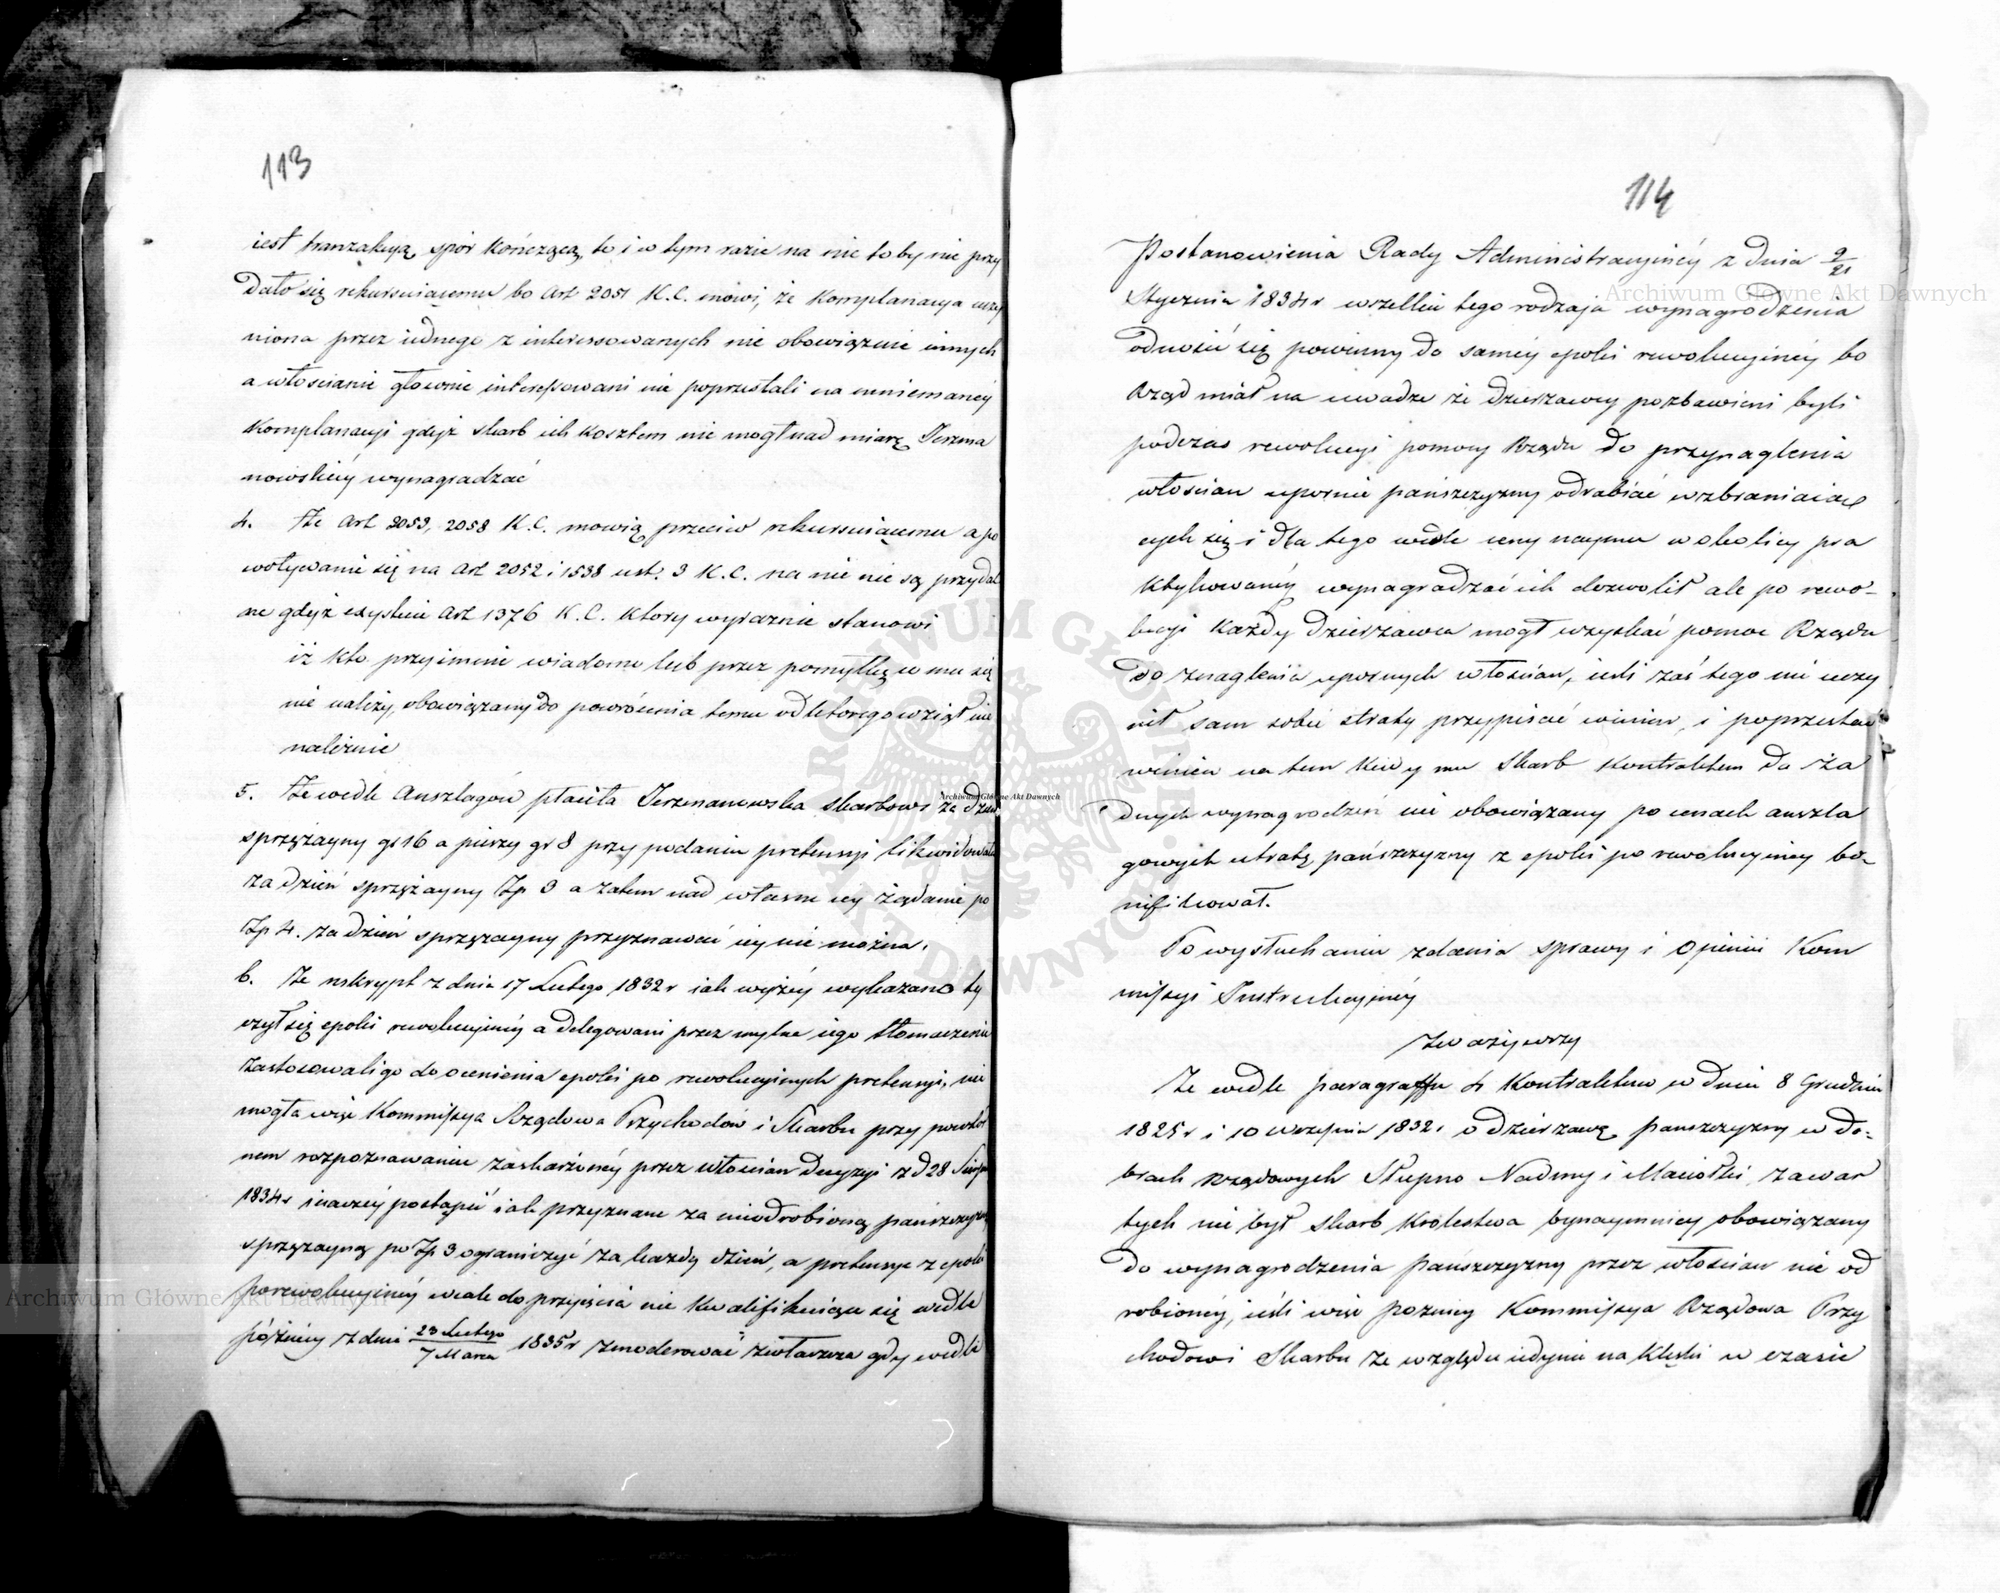 113
iest tranzakcyą spór kończącą, to i w tym razie na nic to by nie przy
dało się rekursuiącemu bo Art 2051 K.C. mówi, że Komplanacya uczy
niona przez iednego z interessowanych nie obowiązuie innych
a włościanie głownie interessowani nie poprzestali na mniemaney
Komplanacyi gdyż skarb ich kosztem nie mogł nad miarę Jerzma
nowskiey wynagradzać
4. Że Art 2053, 2058 K.C. mowią przeciw rekursuiącemu a po
woływanie się na Art 2052 i 1538 ust. 3 K.C. na nic nie są przydat
ne gdyż exystuie Art 1376 K.C. ktory wyraznie stanowi
iż kto przyimuie wiadomie lub przez pomyłkę co mu się
nie należy, obowiązany do powrócenia temu od ktorego wziął nie
należnie
5. Że wedle Auszlagów płaciła Jerzmanowska skarbowi za dzień
sprzężayny gr 16 a pieszy gr 8 przy podaniu pretensyi likwidowała
za dzień sprzężayny Zp 3 a zatem nad własne iey żądanie po
Zp 4. za dzień sprzężayny przyznawać iey nie można.
6. Że reskrypt z dnia 17 Lutego 1832 r iak wyżéy wykazano ty
czył się epoki rewolucyinéy a delegowani przez mylne iego tłomaczenie
zastosowali go do ocenienia epoki po rewolucyinych pretensyi, nie
mogła więc Kommissya Rządowa Przychodów i Skarbu przy powtór
nem rozpoznawaniu zaskarżonéy przez włościan decyzyi z d 28 Sierpn
1834 r inaczéy postąpić iak przyznane za nieodrobioną pańszczyznę
sprzężayną po Zp 3 ograniczyć za każdy dzień, a pretensye z epoki
porewolucyinéy wcale do przyięcia nie kwalifikuiące się wedle
późniey z dnia 23 Lutego / 7 Marca 1835 r zmoderować zwłaszcza gdy wedle
114
Postanowienia Rady Administracyinéy z dnia 9/21
Stycznia 1834 r wszelkie tego rodzaju wynagrodzenia
odnosić się powinny do saméy epoki rewolucyinéy bo
Rząd miał na uwadze że dzierzawcy pozbawieni byli
podczas rewolucyi pomocy Rządu do przynaglenia
włościan upornie pańszczyzny odrabiać wzbraniaiąc
cych się i dla tego wedle ceny naymu w okolicy pra
ktykowanéy wynagradzać ich dozwolił ale po rewo-
lucyi każdy dzierzawca mogł uzyskać pomoc Rządu
do znaglenia upornych włościan, ieśli zaś tego nie uczy
nił sam sobie straty przypisać winien, i poprzestać
winien na tem kiedy mu Skarb kontraktem do ża
dnych wynagrodzeń nie obowiązany po cenach auszla
gowych utratę pańszczyzny z epoki po rewolucyiney bo-
nifikował.
Po wysłuchaniu zdania sprawy i Opinii Kom
missyi Instrukcyinéy
Zważywszy
Że wedle paragraffu 4 Kontraktów w dniu 8 Grudnia
1825 r i 10 Września 1832 r o dzierzawę pańszczyzny w do-
brach Rządowych Słupno Nadmy i Maciołki zawar
tych nie był skarb Królestwa bynaymniey obowiązany
do wynagrodzenia pańszczyzny przez włościan nie od
robionéy, ieśli więc poźniey Kommissya Rządowa Przy
chodowi Skarbu ze względu iedynie na klęski w czasie
Archiwum Główne Akt Dawnych
Archiwum Główne Akt Dawnych
Archiwum Główne Akt Dawnych
ARCHIWUM GŁÓWNE AKT DAWNYCH